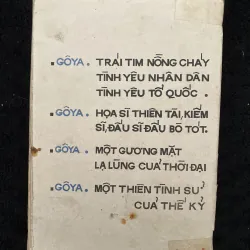 . GÔYA . TRÁI TIM NỒNG CHÁY
TÌNH YÊU NHÂN DÂN
TÌNH YÊU TỔ QUỐC .
. GÔYA . HỌA SĨ THIÊN TÀI, KIẾM
SĨ, ĐẤU SĨ ĐẤU BÒ TÓT.
. GÔYA . MỘT GƯƠNG MẶT
LẠ LÙNG CỦA THỜI ĐẠI
. GÔYA . MỘT THIÊN TÌNH SỬ
CỦA THẾ KỶ